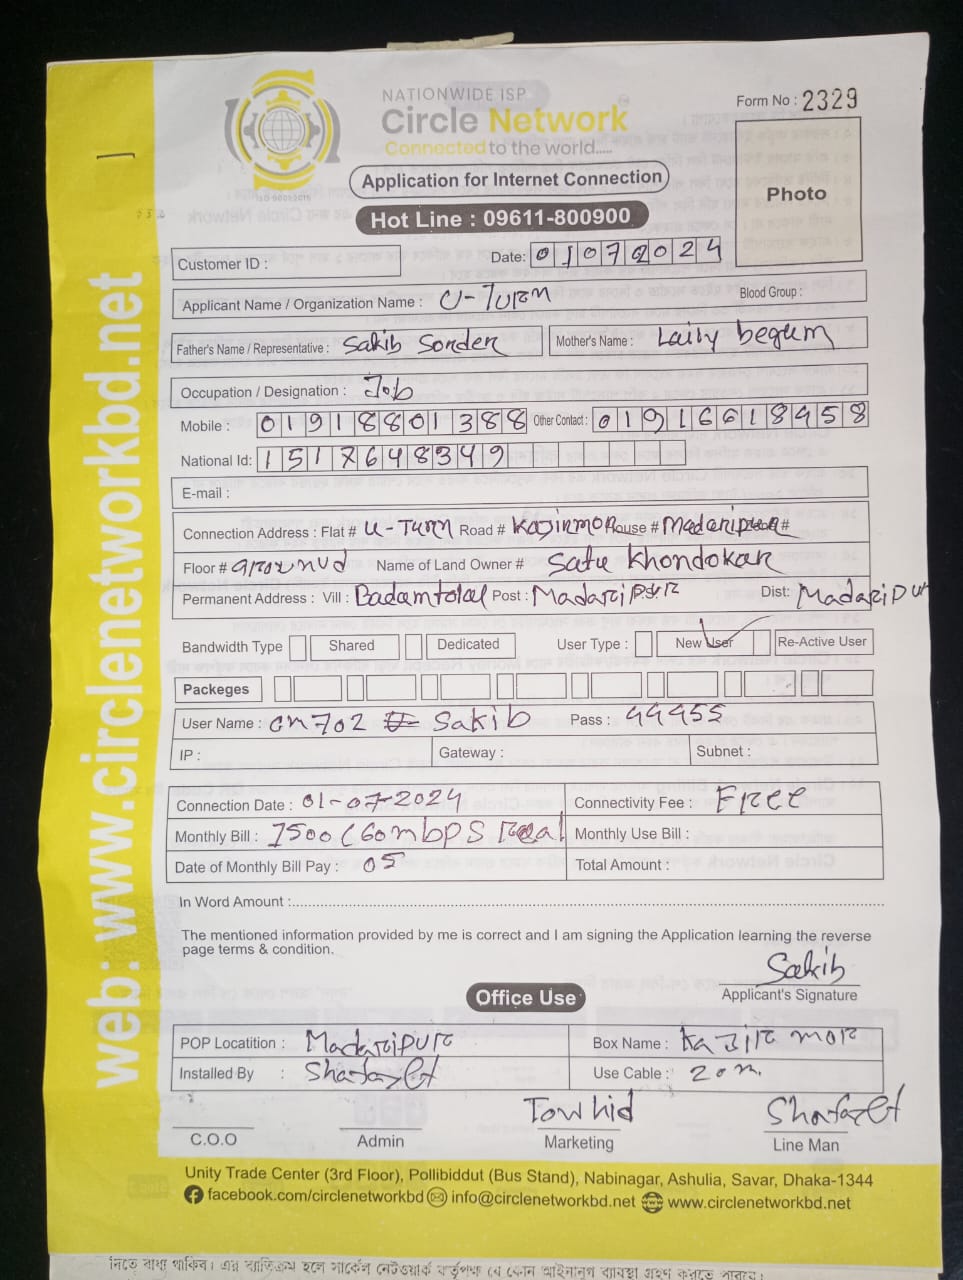 NATIONWIDE ISP
Circle Network
Connected to the world.....
Form No : 2329
Application for Internet Connection
Photo
Hot Line : 09611-800900
ISO 9001:2015
Customer ID :
Date: 01072024
Applicant Name / Organization Name : U-Turn
Blood Group :
Father's Name / Representative : Sakib Sorder
Mother's Name : Laily begum
Occupation / Designation : Job
Mobile : 01918801388 Other Contact : 01916618958
National Id: 1517648349
E-mail :
Connection Address : Flat # U-Turn Road # Kazirmor House # Madaripur #
Floor # grounud Name of Land Owner # Satu Khondokar
Permanent Address : Vill : Badamtolal Post : Madaripur Dist: Madaripur
Bandwidth Type Shared Dedicated User Type : New User Re-Active User
Packeges
User Name : cn702 Sakib Pass : 44455
IP : Gateway : Subnet :
Connection Date : 01-07-2024 Connectivity Fee : Free
Monthly Bill : 1500 (60mbps Real Monthly Use Bill :
Date of Monthly Bill Pay : 05 Total Amount :
In Word Amount :
The mentioned information provided by me is correct and I am signing the Application learning the reverse
page terms & condition.
Sakib
Applicant's Signature
Office Use
POP Locatition : Madaripur Box Name : Kazir mor
Installed By : Shafayet Use Cable : 20 m.
Towhid Shafayet
C.O.O Admin Marketing Line Man
Unity Trade Center (3rd Floor), Pollibiddut (Bus Stand), Nabinagar, Ashulia, Savar, Dhaka-1344
facebook.com/circlenetworkbd info@circlenetworkbd.net www.circlenetworkbd.net
web: www.circlenetworkbd.net
নিতে বাধ্য থাকিব। এর ব্যতিক্রম হলে সার্কেল নেটওয়ার্ক কর্তৃপক্ষ যে কোন আইনানুগ ব্যবস্থা গ্রহণ করতে পারবে।